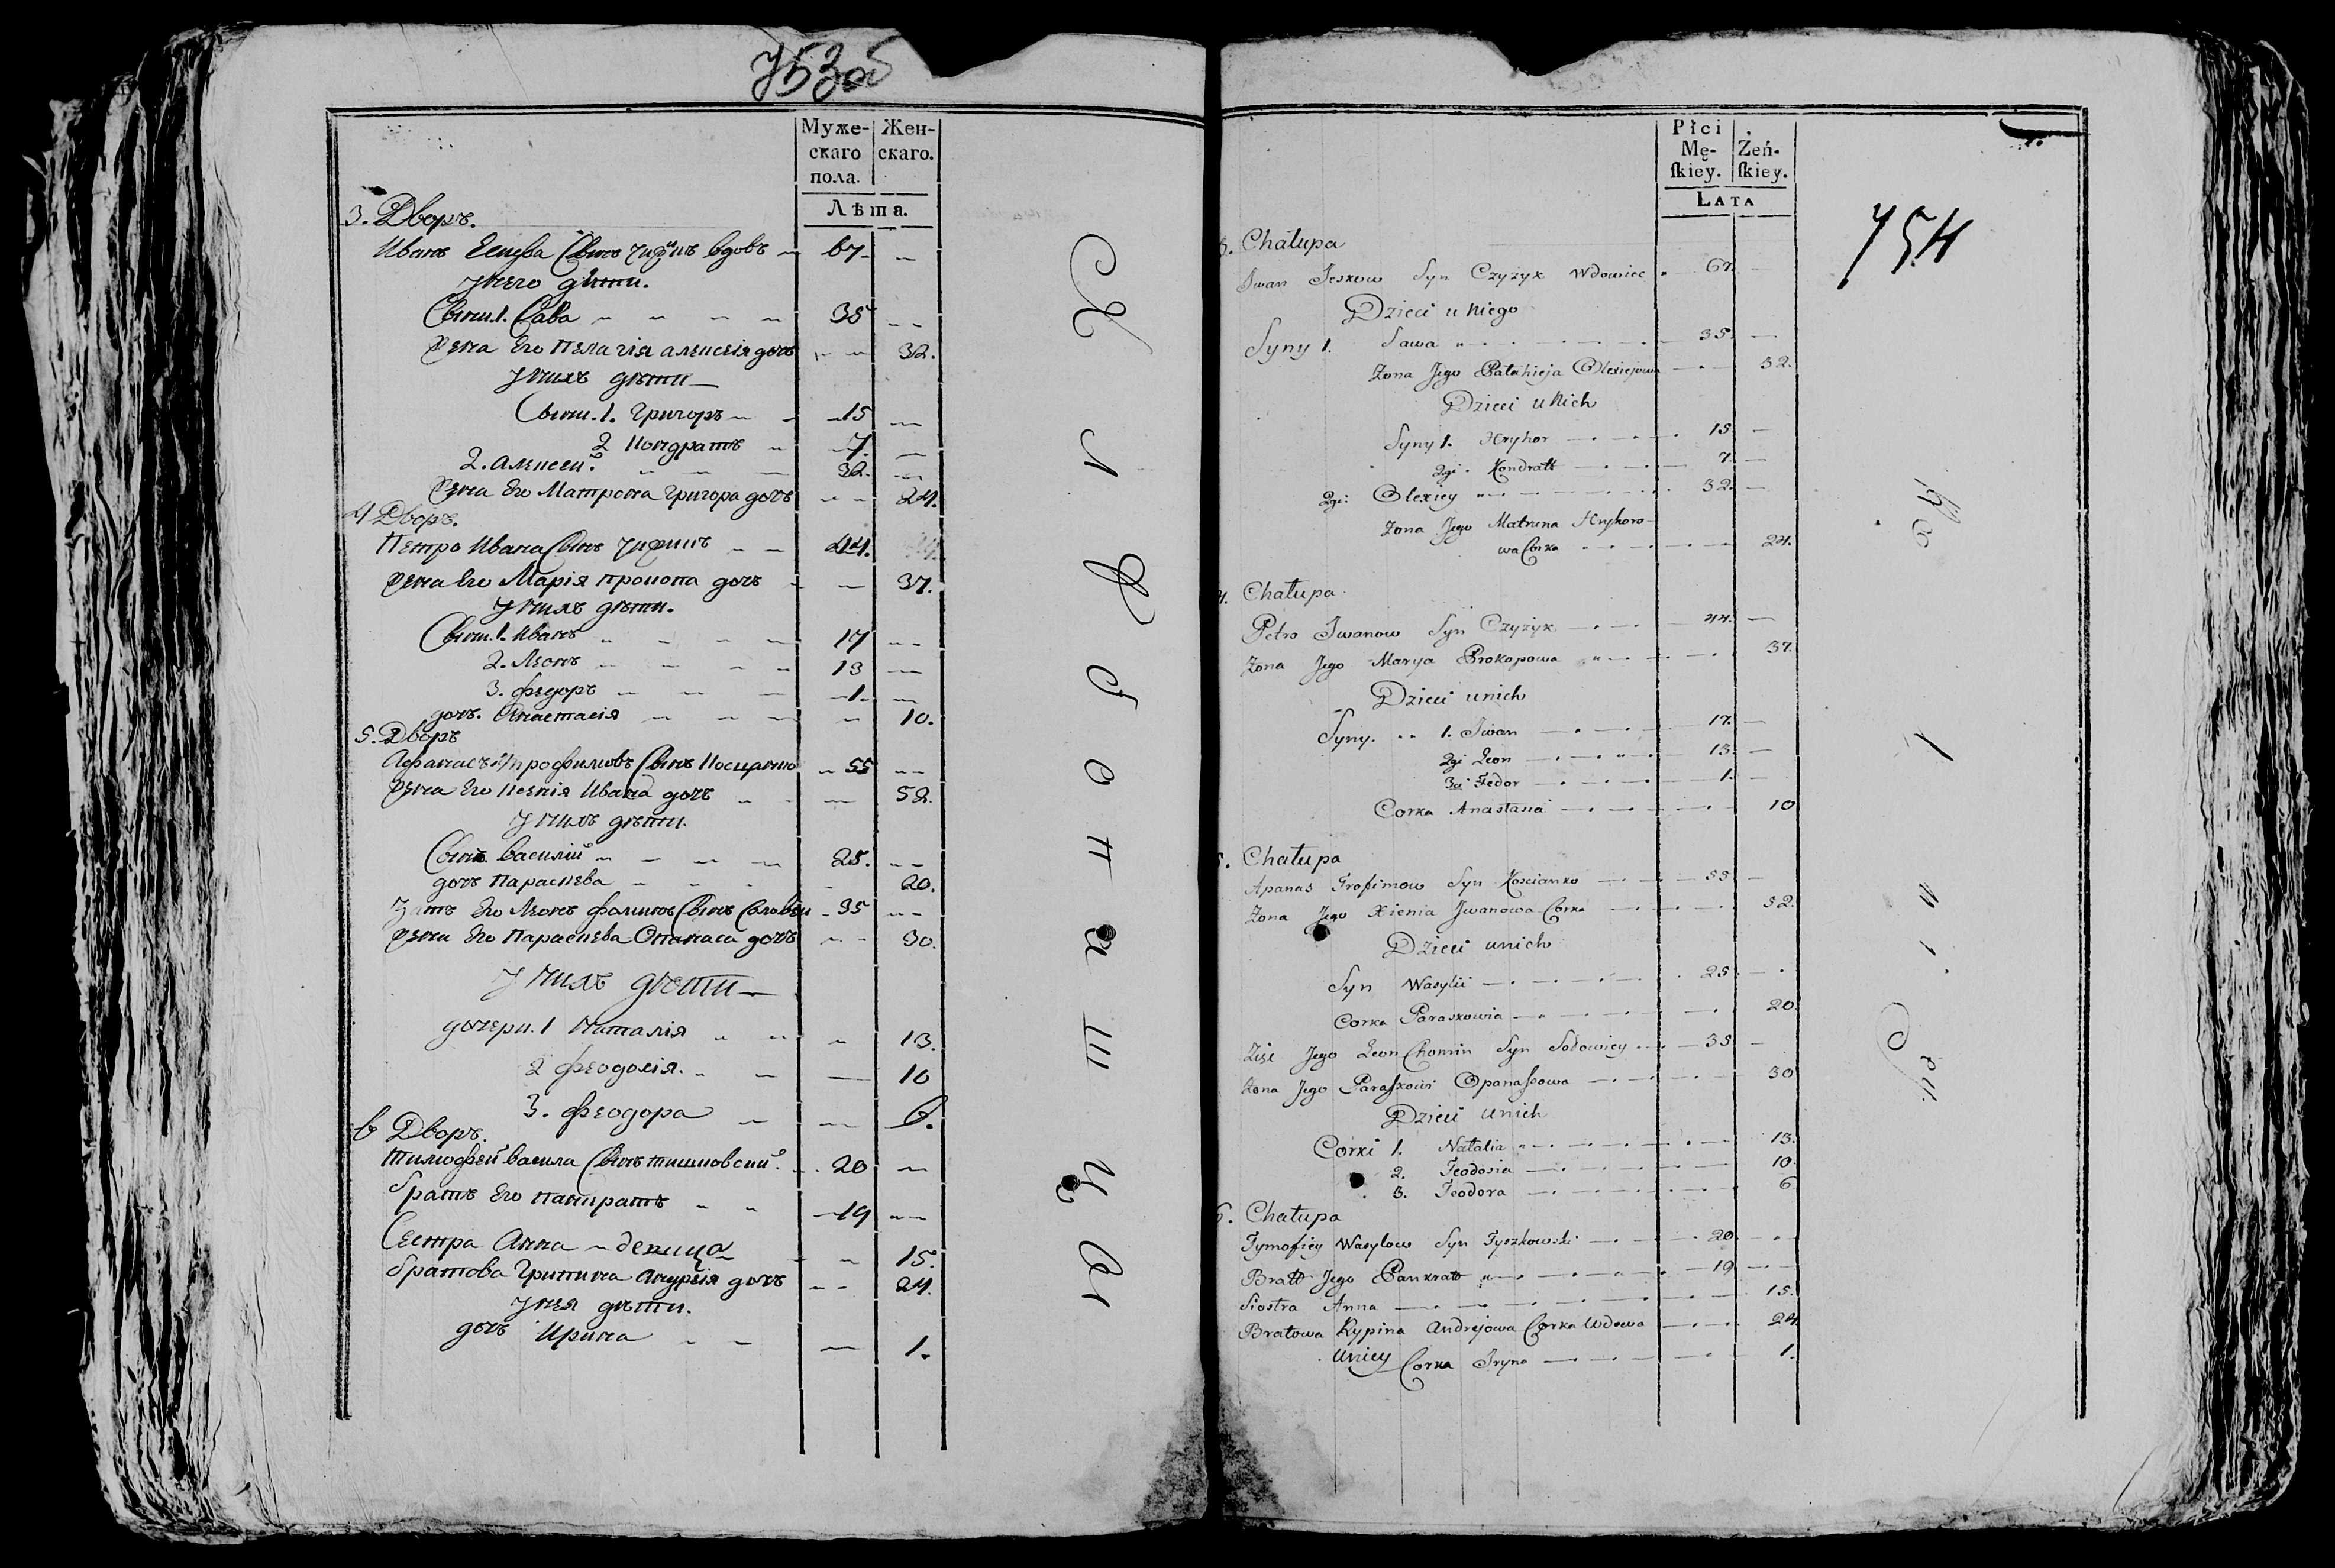 753об
Муже-
скаго
пола.
Жен-
скаго.
Лѣта.
3. Дворъ.
Иванъ Есцева Сынъ Чижикъ вдовъ 67.
У него дѣти.
Сыны. 1. Сава 35
Жена Его Пелагія Алексѣя дочь 32.
У нихъ дѣти
Сыны. 1. Григоръ 15
2 Кондратъ 7.
2. Алексей. 32.
Жена Его Матрона Григора дочь 24.
4 Дворъ.
Петро Ивана Сынъ Чижикъ 44.
Жена Его Марія Прокопа дочь 37.
У нихъ дѣти.
Сыны. 1. Иванъ 17
2. Леонъ 13
3. Федоръ 1.
дочь. Анастасія 10.
5. Дворъ
Афанасъ Трофимовъ Сынъ Косцянко 55
Жена Его Ксенія Ивана дочь 52.
У нихъ дѣти.
Сынъ Василій 25.
дочь Параскева 20.
Зять Его Леонъ Фоминъ Сынъ Соловей 35
Жена Его Параскева Опанаса дочь 30.
У нихъ дѣти
дочери. 1 Наталія 13.
2 Феодосія. 10
3. Феодора 6.
6 Дворъ.
Тимофей Васила Сынъ Тишковский. 20
Братъ Его Панкратъ 19
Сестра Анна девица 15.
Братова Грипина Андрѣя дочь 24.
У нея дѣти.
дочь Ирина 1.
Płci
Mę-
ſkiey.
Żeń-
ſkiey.
LATA
754
3. Chałupa
Iwan Jeskow Syn Czyżyk Wdowiec 67.
Dzieci u niego
Syny 1. Sawa 35.
Żona Jego Pałahieja Olexiejowa 32.
Dzieci u Nich
Syny 1. Hryhor 15.
2gi. Kondratt 7.
2gi: Olexiey 32.
Żona Jego Matruna Hryhoro-
wa Corka 24.
4. Chałupa
Petro Iwanow Syn Czyżyk 44.
Żona Jego Marya Prokopowa 37.
Dzieci unich
Syny. 1. Iwan 17.
2gi Leon 13.
3ci Fedor 1.
Corka Anastasia 10
5. Chałupa
Apanas Trofimow Syn Kościanko 55
Żona Jego Xienia Iwanowa Corka 52.
Dzieci unich
Syn Wasylii 25
Corka Paraskowia 20
Zięć Jego Leon Chomin Syn Sołowiey 35
Żona Jego Paraſkowi Opanaſowa 30
Dzieci unich
Corki 1. Natalia 13.
2. Teodosia 10.
3. Teodora 6
6. Chałupa
Tymofiey Wasylow Syn Tyszkowski 20
Bratt Jego Pankratt 19
Siostra Anna 15.
Bratowa Rypina Andrejowa Corka Wdowa 24
Uniey Corka Iryna 1.